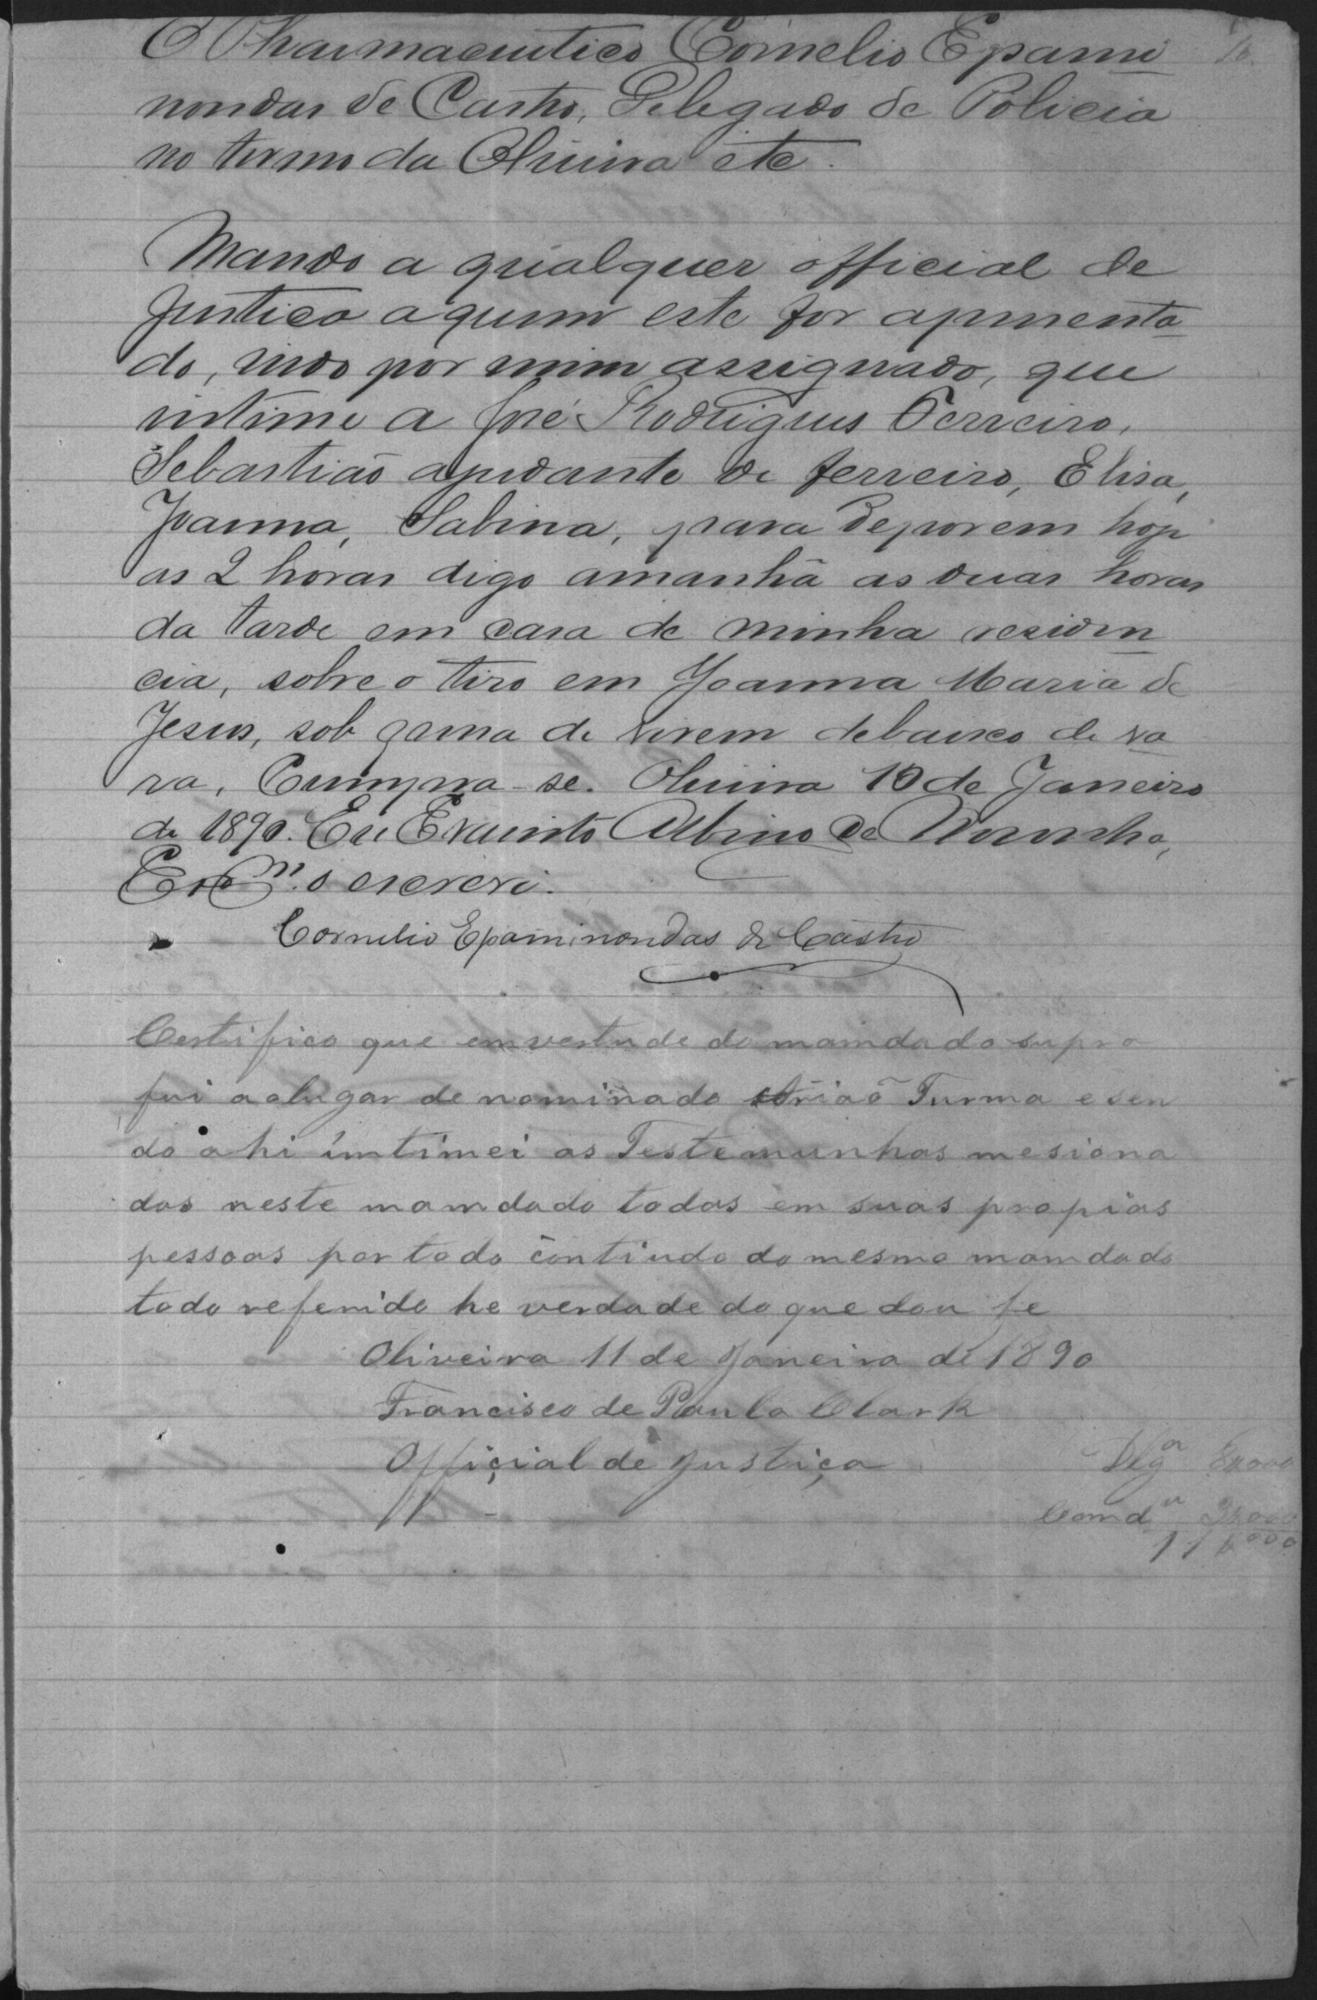 O Pharmaceutico Cornelio Epami
nondas de Castro, Delegado de Policia
no termo da Oliveira etc.
Mando a qualquer official de
Justiça a quem este for apresenta
do, indo por mim assignado, que
intime a José Rodrigues Ferreiro,
Sebastião ajudante de ferreiro, Elisa,
Joanna, Sabina, para deporem hoje
as 2 horas digo amanhã as duas horas
da tarde em casa de minha residen
cia, sobre o tiro em Joanna Maria de
Jesus, sob pena de virem debaixo de va
ra, Cumpra-se. Oliveira 10 de Janeiro
de 1890. Eu Albino de Noronha,
Escm. o escrevi.
Cornelio Epaminondas de Castro
Certifico que em vertude do mamdado supra
fui a o lugar de nominado Turma e sen
do ahi imtimei as Testemunhas mesiona
das neste mamdado todas em suas propias
pessoas por todo contiudo do mesmo mamdado
todo referido he verdade do que dou fe
Oliveira 11 de Janeiro de 1890
Francisco de Paula Clark
Offiçial de Justiça
Dlga 8000
Comdu 3000
11$000